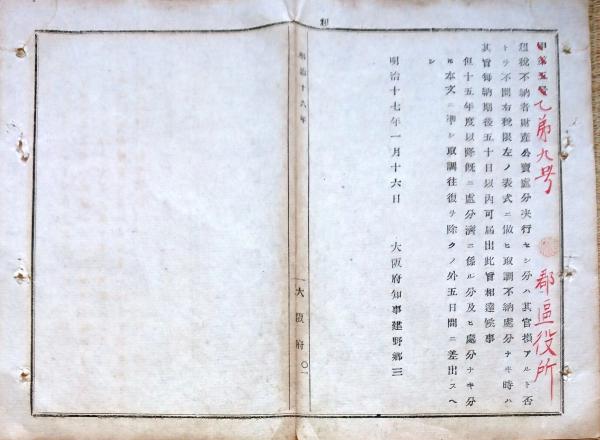 乙第九号　郡區役所
租税不納者財産公賣處分決行セシ分ハ其官損アルト否
トヲ不問右税限左ノ表式ニ倣ヒ取調不納處分ナキ時ハ
其旨毎納期後五十日以内可届出此旨相達候事
但十五年度以降既ニ處分濟ニ係ル分及ヒ處分ナキ分
ハ本文ニ準シ取調往復ヲ除クノ外五日間ニ差出スヘ
シ
明治十七年一月十六日　大阪府知事建野郷三
大阪府